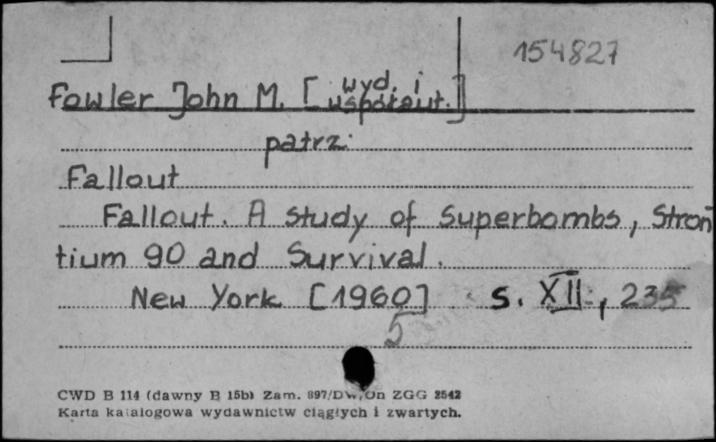 154827
Fowler John M. [wyd. i współaut.]
patrz:
Fallout
Fallout. A study of Superbombs, Stron
tium 90 and Survival.
New York [1960] s. XII, 235
5
CWD B 114 (dawny B 15b) Zam. 897/DW/On ZGG 2542
Karta katalogowa wydawnictw ciągłych i zwartych.